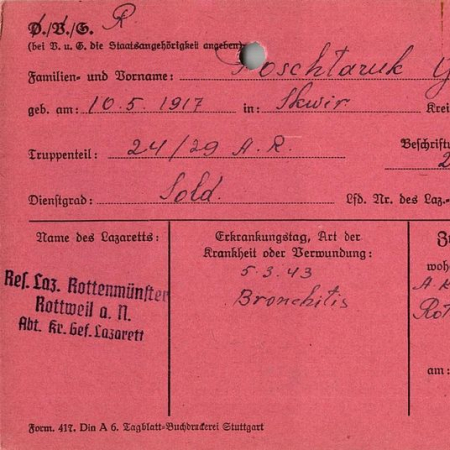 D./V./G. R
(bei V. u. G. die Staatsangehörigkeit angeben)
Familien- und Vorname: Poschtaruk
geb. am: 10.5.1917 in: Skwir Krei
Truppenteil: 24/29 A.R. Beschriftu
2
Dienstgrad: Sold. Lfd. Nr. des Laz.-
Name des Lazaretts:
Erkrankungstag, Art der
Krankheit oder Verwundung:
woh
5.3.43
Bronchitis
Ref. Laz. Rottenmünster
Rottweil a. N.
Abt. Kr. Gef. Lazarett
am:
Form. 417. Din A 6. Tagblatt-Buchdruckerei Stuttgart